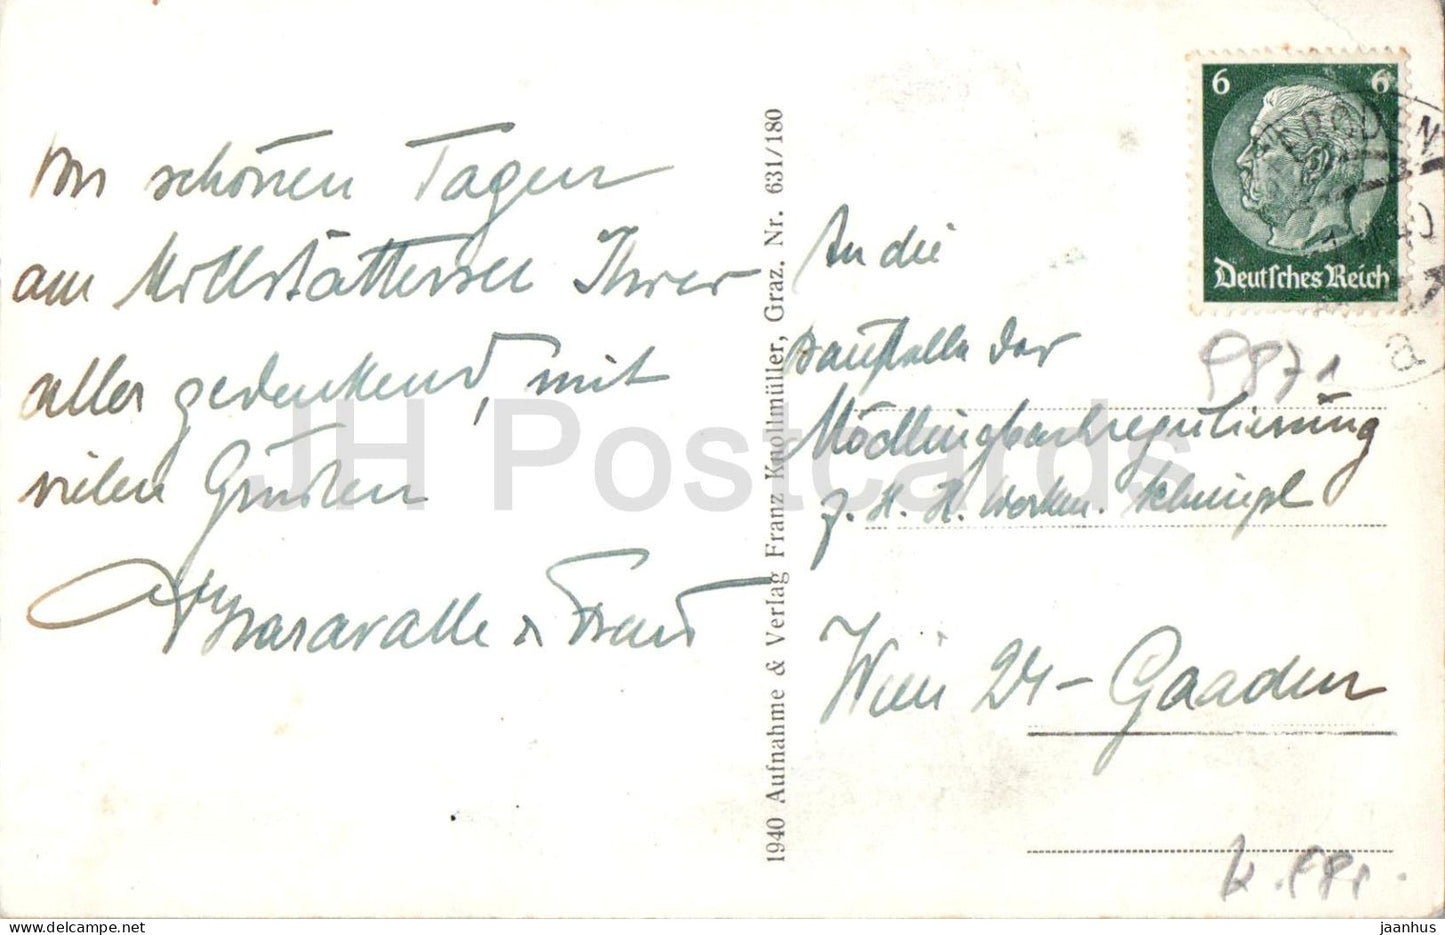 Von schönen Tagen
am Millstättersee Ihrer
aller gedenkend, mit
vielen Grüßen
Bravaralle u Frau
1940 Aufnahme & Verlag Franz Knollmüller, Graz. Nr. 631/180
6 6
Deutsches Reich
An die
Baustelle der
Mödlingbachregulierung
z. H. H. Werkm.
Wien 24 - Gaaden
9871
JH Postcards
jaanhus @ delcampe.net